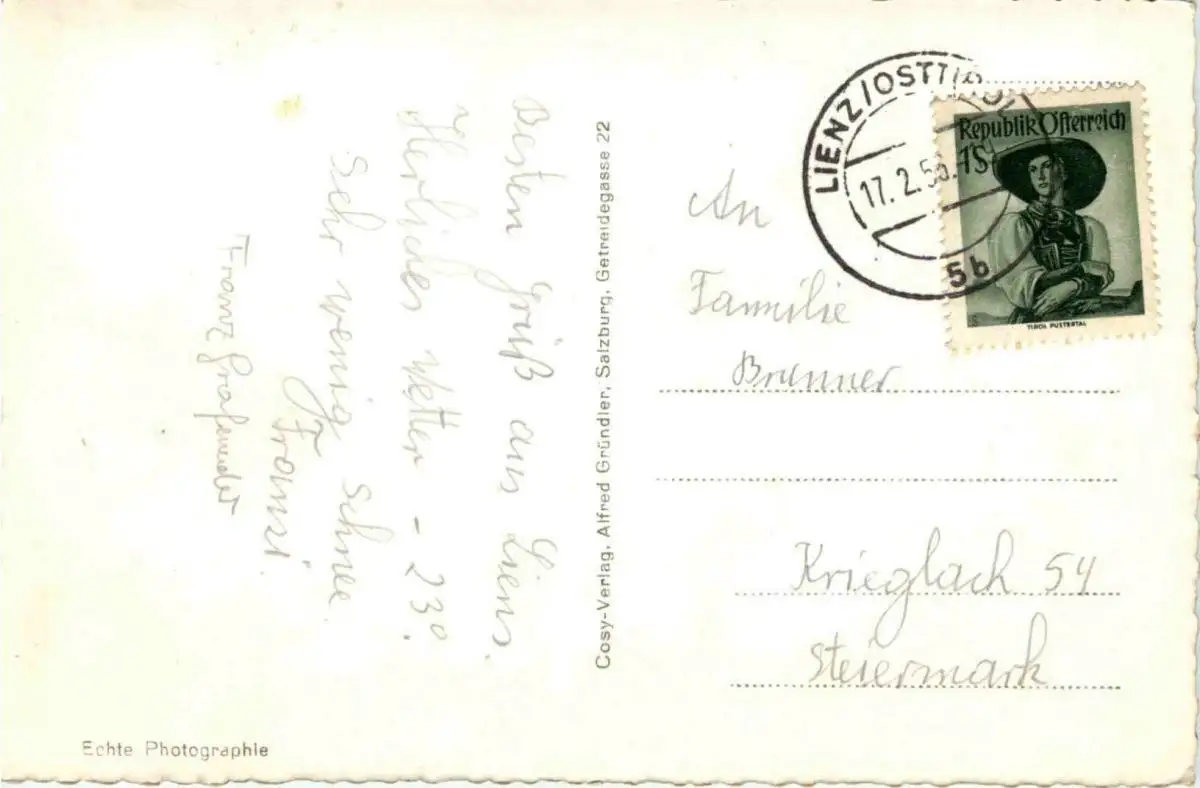 Besten Gruß aus Lienz.
Herliches Wetter - 23°.
Sehr wenig Schnee
Franzi
Franz
Cosy-Verlag, Alfred Gründler, Salzburg, Getreidegasse 22
LIENZ/OSTTIROL
17.2.56.
5b
Republik Österreich
1S
TIROL PUSTERTAL
An
Familie
Brunner
Krieglach 54
Steiermark
Echte Photographie